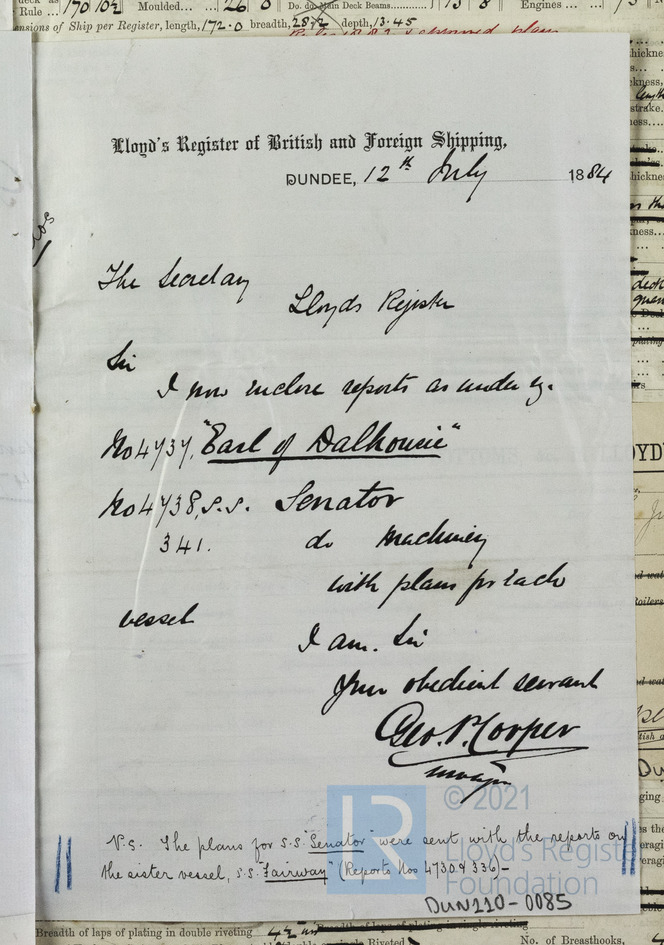 Rule ... 170 10½ Moulded... 26 0 Do. do. Main Deck Beams 15 8 Engines ... 73
ensions of Ship per Register, length, 172.0 breadth, 28.2 depth, 13.45
Lloyd's Register of British and Foreign Shipping,
DUNDEE, 12th July 1884
The Secretary
Lloyds Register
Sir
I now enclose reports as under vz.
No 4737, "Earl of Dalhousie"
No 4738, s.s. Senator
341. do machinery
with plans for each
vessel
I am. Sir
Your obedient servant
Geo. P. Cooper
P.S. The plans for s.s. "Senator" were sent with the reports on
the sister vessel, s.s. "Fairway" (Reports Nos 4730 & 336)-
© 2021
Lloyd's Register
Foundation
DUN110-0085
Breadth of laps of plating in double riveting
No. of Breasthooks,